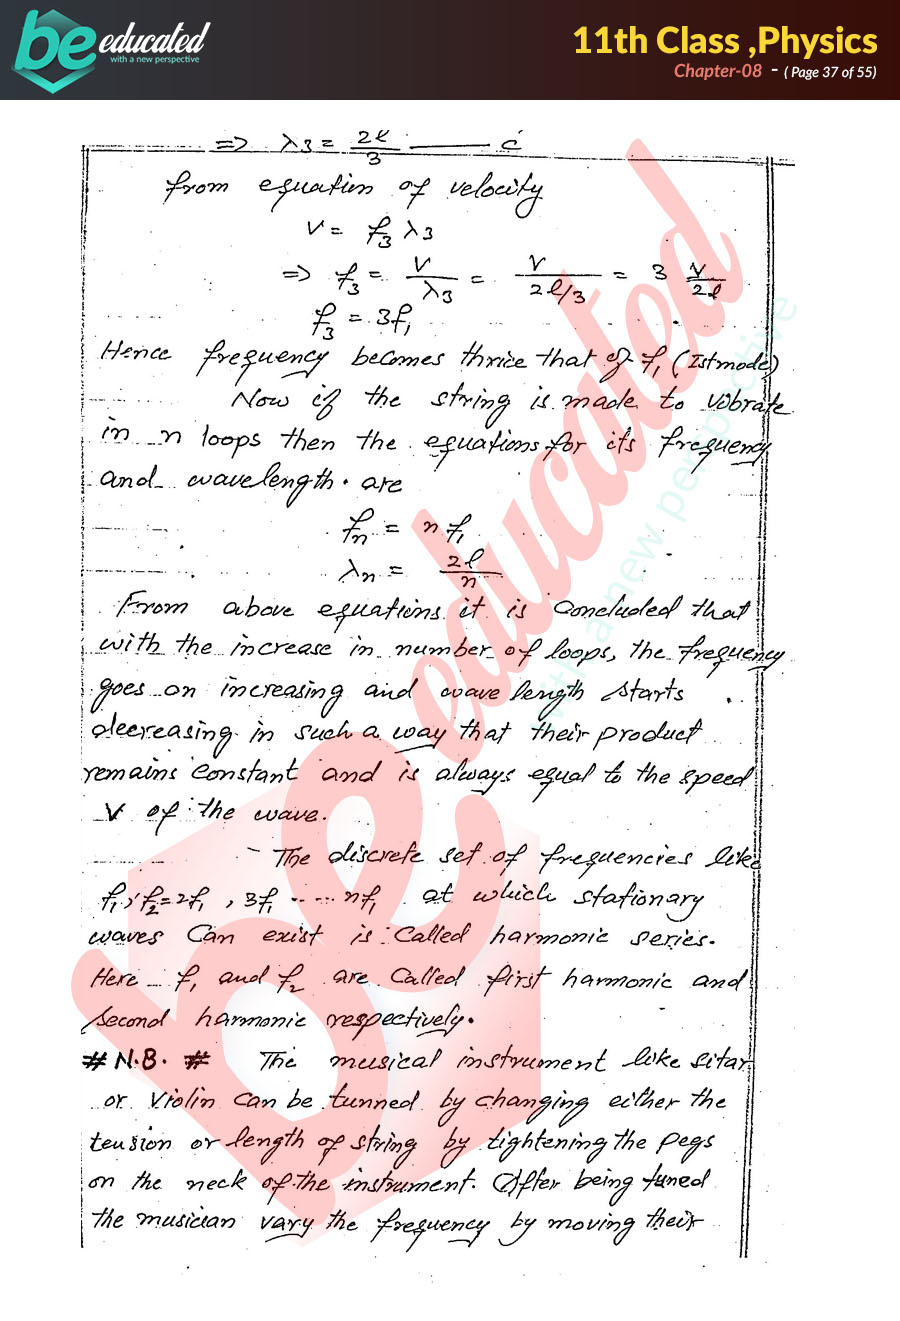 be educated
with a new perspective
11th Class ,Physics
Chapter-08 - ( Page 37 of 55)
=> λ3 = 2ℓ/3 ——— c
from equation of velocity
V = f3 λ3
=> f3 = V/λ3 = V/2ℓ/3 = 3 V/2ℓ
f3 = 3f1
Hence frequency becomes thrice that of f1 (Ist mode)
Now if the string is made to vibrate
in n loops then the equations for its frequency
and wavelength. are
fn = n f1
λn = 2ℓ/n
From above equations it is concluded that
with the increase in number of loops, the frequency
goes on increasing and wave length starts
decreasing in such a way that their product
remains constant and is always equal to the speed
V of the wave.
The discrete set of frequencies like
f1, f2=2f1, 3f1 ..... nf1 at which stationary
waves can exist is called harmonic series.
Here f1 and f2 are called first harmonic and
second harmonic respectively.
# N.B. # The musical instrument like sitar
or violin can be tunned by changing either the
tension or length of string by tightening the pegs
on the neck of the instrument. After being tuned
the musician vary the frequency by moving their
be educated
with a new perspective